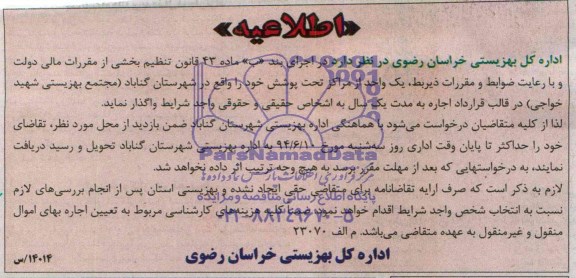 «اطلاعیه»
اداره کل بهزیستی خراسان رضوی در نظر دارد در اجرای بند «ب» ماده ۴۳ قانون تنظیم بخشی از مقررات مالی دولت
و با رعایت ضوابط و مقررات ذیربط، یک واحد از مراکز تحت پوشش خود را واقع در شهرستان گناباد (مجتمع بهزیستی شهید
خواجی) در قالب قرارداد اجاره به مدت یک سال به اشخاص حقیقی و حقوقی واجد شرایط واگذار نماید.
لذا از کلیه متقاضیان درخواست می‌شود با هماهنگی اداره بهزیستی شهرستان گناباد ضمن بازدید از محل مورد نظر، تقاضای
خود را حداکثر تا پایان وقت اداری روز سه‌شنبه مورخ ۹۴/۶/۱۰ به اداره بهزیستی شهرستان گناباد تحویل و رسید دریافت
نمایند، به درخواستهایی که بعد از مهلت مقرر برسد به هیچ وجه ترتیب اثر داده نخواهد شد.
لازم به ذکر است که صرف ارایه تقاضانامه برای متقاضی حقی ایجاد نشده و بهزیستی استان پس از انجام بررسی‌های لازم
نسبت به انتخاب شخص واجد شرایط اقدام خواهد نمود، ضمنا کلیه هزینه‌های کارشناسی مربوط به تعیین اجاره بهای اموال
منقول و غیرمنقول به عهده متقاضی می‌باشد. م الف ۲۳۰۷۰
اداره کل بهزیستی خراسان رضوی
۱۴۰۱۴/س
ParsNamadData
پایگاه اطلاع رسانی مناقصه و مزایده
۰۲۱-۸۸۳۴۹۶۷۰-۵